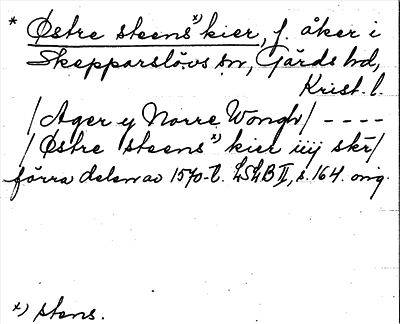 * Østre steens x) kier, f. åker i
Skepparslövs sn, Gärds hd,
Krist. l.
/ Ager y Norre Wongh / - - - -
/ Østre steens x) kier iiij skr /
förra delen av 1570-t. LSLB II, s. 164. orig.
x) stens.